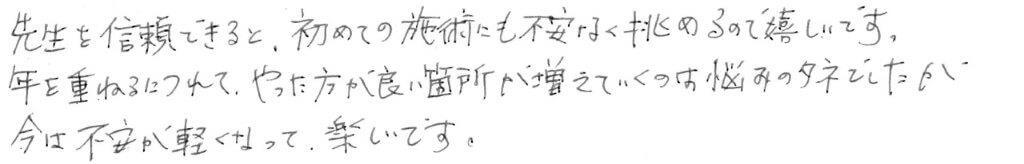 先生を信頼できると、初めての施術にも不安なく挑めるので嬉しいです。
年を重ねるにつれて、やった方が良い箇所が増えていくのは悩みのタネでしたが
今は不安が軽くなって、楽しいです。